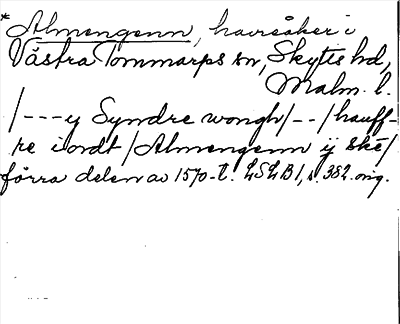 *Almengenn, havreåker i
Västra Tommarps sn, Skytts hd,
Malm. l.
/---y Syndre wongh/--/hauff-
re iordt/Almengenn ij ske/
förra delen av 1570-t. LSLB1, s. 382. orig.